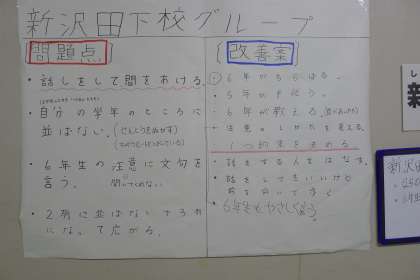 新沢田下校グループ
問題点
・話しをして間をあける。
・自分の学年のところに
並ばない。(せんとうをぬかす)
・6年生の注意に文句を
言う。
聞いてくれない
・2列に並ばない
になって広がる。
改善案
6年がちらばる。
5年が手伝う。
6年が教える。
注意のしかたを考える。
1つ約束を決める
・話をする人をはなす。
・話をしてもいいけど
・6年生もやさしく言う。
新
新沢田